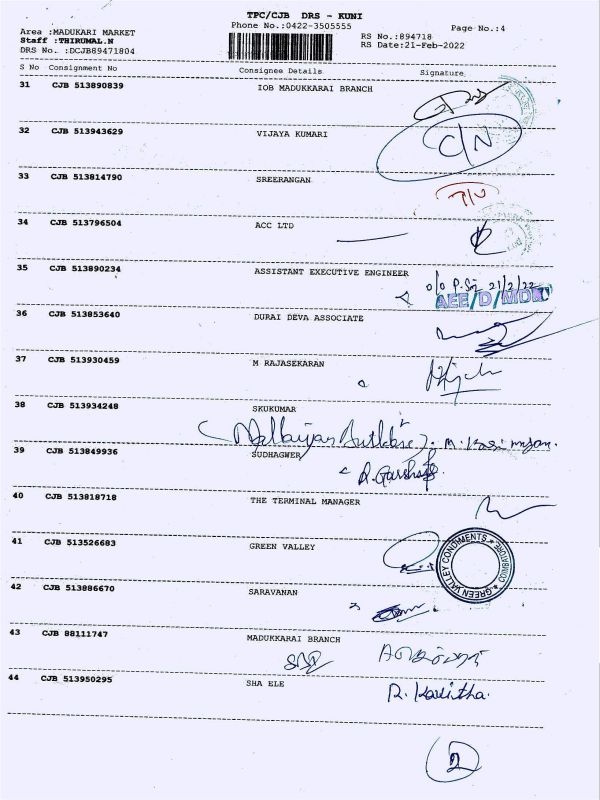 TPC/CJB DRS - KUNI
Phone No.:0422-3505555
Page No.:4
Area :MADUKARI MARKET
Staff :THIRUMAL.N
DRS No. :DCJB89471804
RS No.:894718
RS Date:21-Feb-2022
S No Consignment No Consignee Details Signature
31 CJB 513890839 IOB MADUKKARAI BRANCH
32 CJB 513943629 VIJAYA KUMARI C/N
33 CJB 513814790 SREERANGAN
34 CJB 513796504 ACC LTD
35 CJB 513890234 ASSISTANT EXECUTIVE ENGINEER 21/2/22
AEE/D/MDK
36 CJB 513853640 DURAI DEVA ASSOCIATE
37 CJB 513930459 M RAJASEKARAN
38 CJB 513934248 SKUKUMAR
39 CJB 513849936 SUDHAGWER
40 CJB 513818718 THE TERMINAL MANAGER
41 CJB 513526683 GREEN VALLEY
GREEN VALLEY CONDIMENTS * COIMBATORE *
42 CJB 513886670 SARAVANAN
43 CJB 88111747 MADUKKARAI BRANCH
44 CJB 513950295 SHA ELE R. Kavitha.
2